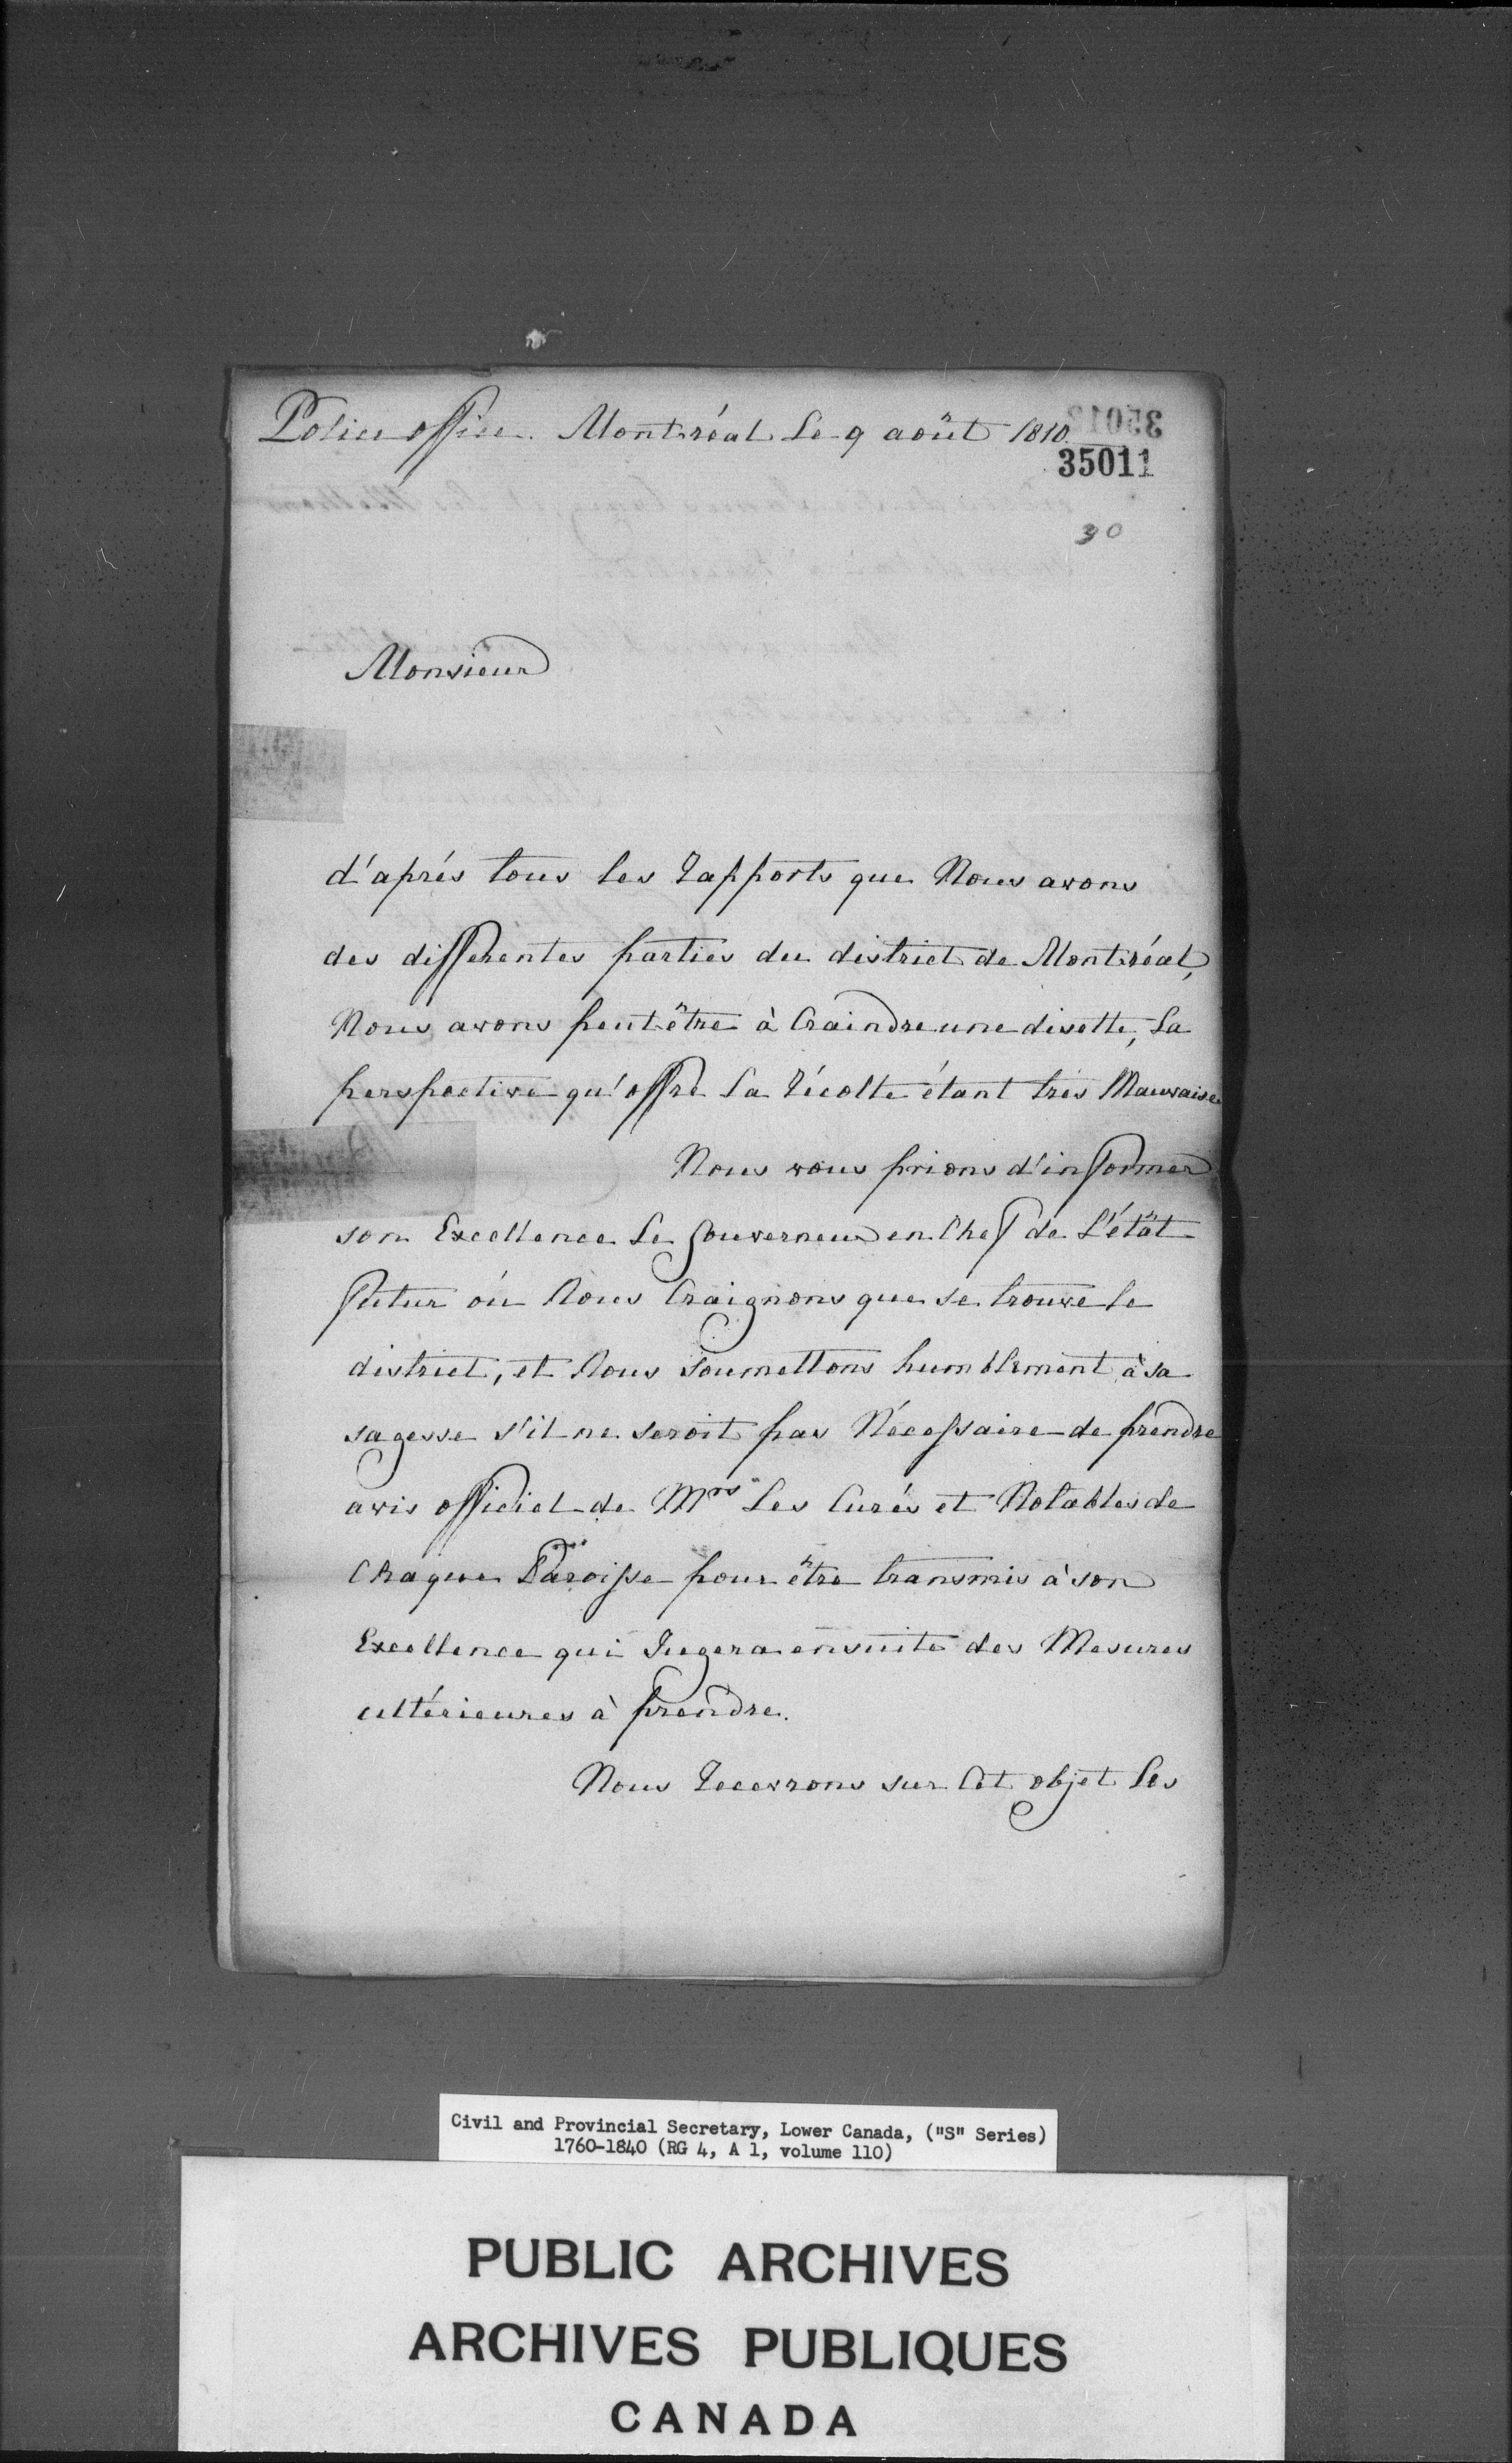 Police office. Montréal Le 9 août 1810
35013
35011
30
Monsieur
d'aprés tous les rapports que Nous avons
des differentes parties du district de Montréal,
Nous avons peut être à Craindre une disette, La
perspective qu'offre La récolte étant trés Mauvaise
Nous vous prions d'informer
son Excellence Le gouverneur en Chef de L'étât
futur oú Nous Craignons que se trouve le
district, et Nous soumettons humblement à sa
sagesse s'il ne seroit pas Nécessaire de prendre
avis officiel de Mrs Les Curés et Notables de
Chaque Paroisse pour être transmis à son
Excellence qui Jugera ensuite des Mesures
ultérieures à prendre.
Nous recevrons sur Cet objet Les
Civil and Provincial Secretary, Lower Canada, ("S" Series)
1760-1840 (RG 4, A 1, volume 110)
PUBLIC ARCHIVES
ARCHIVES PUBLIQUES
CANADA